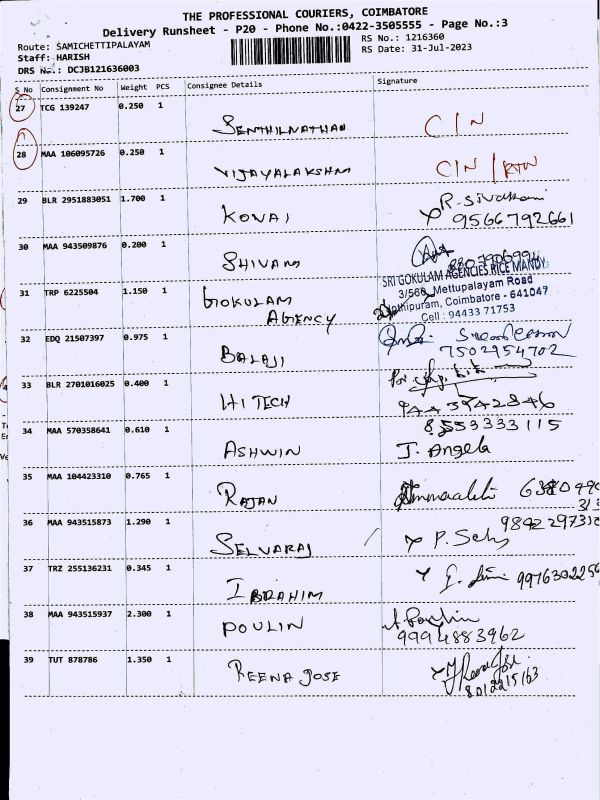 THE PROFESSIONAL COURIERS, COIMBATORE
Delivery Runsheet - P20 - Phone No.:0422-3505555 - Page No.:3
Route: SAMICHETTIPALAYAM
RS No.: 1216360
Staff: HARISH
RS Date: 31-Jul-2023
DRS No.: DCJB121636003
S No Consignment No Weight PCS Consignee Details Signature
27 TCG 139247 0.250 1
SENTHILNATHAN C/N
28 MAA 106095726 0.250 1
VIJAYALAKSHM C/N / RTN
29 BLR 2951883051 1.700 1
KOVAI R-Sivakami
9566792661
30 MAA 943509876 0.200 1
SHIVAM
31 TRP 6225504 1.150 1
GOKULAM
AGENCY
SRI GOKULAM AGENCIES RICE MANDY
3/560, Mettupalayam Road
Coimbatore - 641047
Cell : 94433 71753
32 EDQ 21507397 0.975 1
BALAJI 7502954702
33 BLR 2701016025 0.400 1
HITECH 9443942846
34 MAA 570358641 0.610 1
8553333115
ASHWIN J. Angela
35 MAA 104423310 0.765 1
RAJAN
36 MAA 943515873 1.290 1
SELVARAJ
37 TRZ 255136231 0.345 1
IBRAHIM
38 MAA 943515937 2.300 1
POULIN
9994883962
39 TUT 878786 1.350 1
REENA JOSE Reena Jose
8012215163